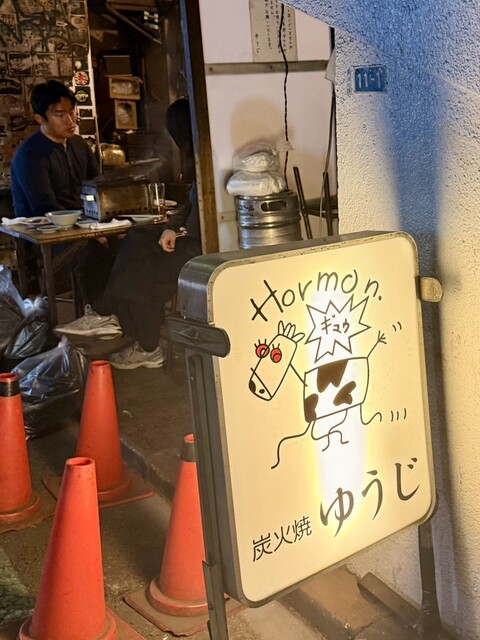 11-1
Hormon.
ギュウ
炭火焼 ゆうじ